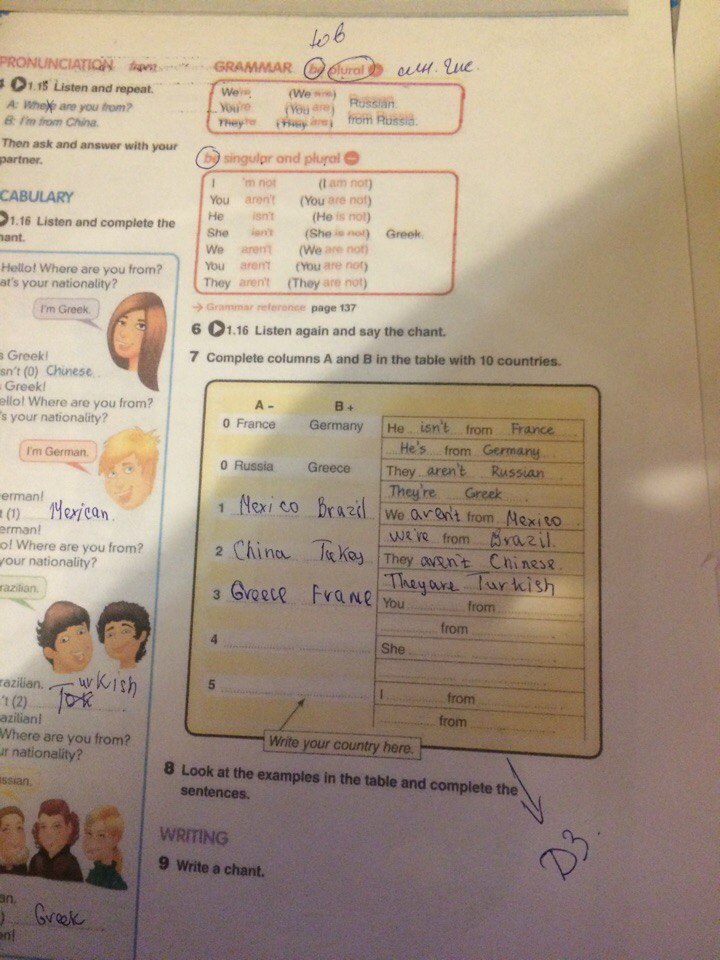 to be
PRONUNCIATION
1.15 Listen and repeat.
A: Where are you from?
B: I'm from China.
Then ask and answer with your
partner.
CABULARY
1.16 Listen and complete the
hant.
Hello! Where are you from?
at's your nationality?
I'm Greek.
s Greek!
isn't (0) Chinese
Greek!
ello! Where are you from?
's your nationality?
I'm German.
erman!
t (1) Mexican.
erman!
o! Where are you from?
your nationality?
razilian.
razilian.
't (2) Turkish
azilian!
Where are you from?
ur nationality?
ssian.
an.
) Greek
an!
GRAMMAR be plural + мн. чис.
We're (We are)
You're (You are) Russian.
They're (They are) from Russia.
be singular and plural −
I 'm not (I am not)
You aren't (You are not)
He isn't (He is not)
She isn't (She is not) Greek.
We aren't (We are not)
You aren't (You are not)
They aren't (They are not)
→ Grammar reference page 137
6 1.16 Listen again and say the chant.
7 Complete columns A and B in the table with 10 countries.
A − B +
0 France Germany
He isn't from France
He's from Germany
0 Russia Greece
They aren't Russian
They're Greek
1 Mexico Brazil
We aren't from Mexico
we're from Brazil.
2 China Tukey
They aren't Chinese.
They are Turkish
3 Greece Frane
You from
from
4
She
5
I from
from
Write your country here.
8 Look at the examples in the table and complete the
sentences.
WRITING
9 Write a chant.
ДЗ.